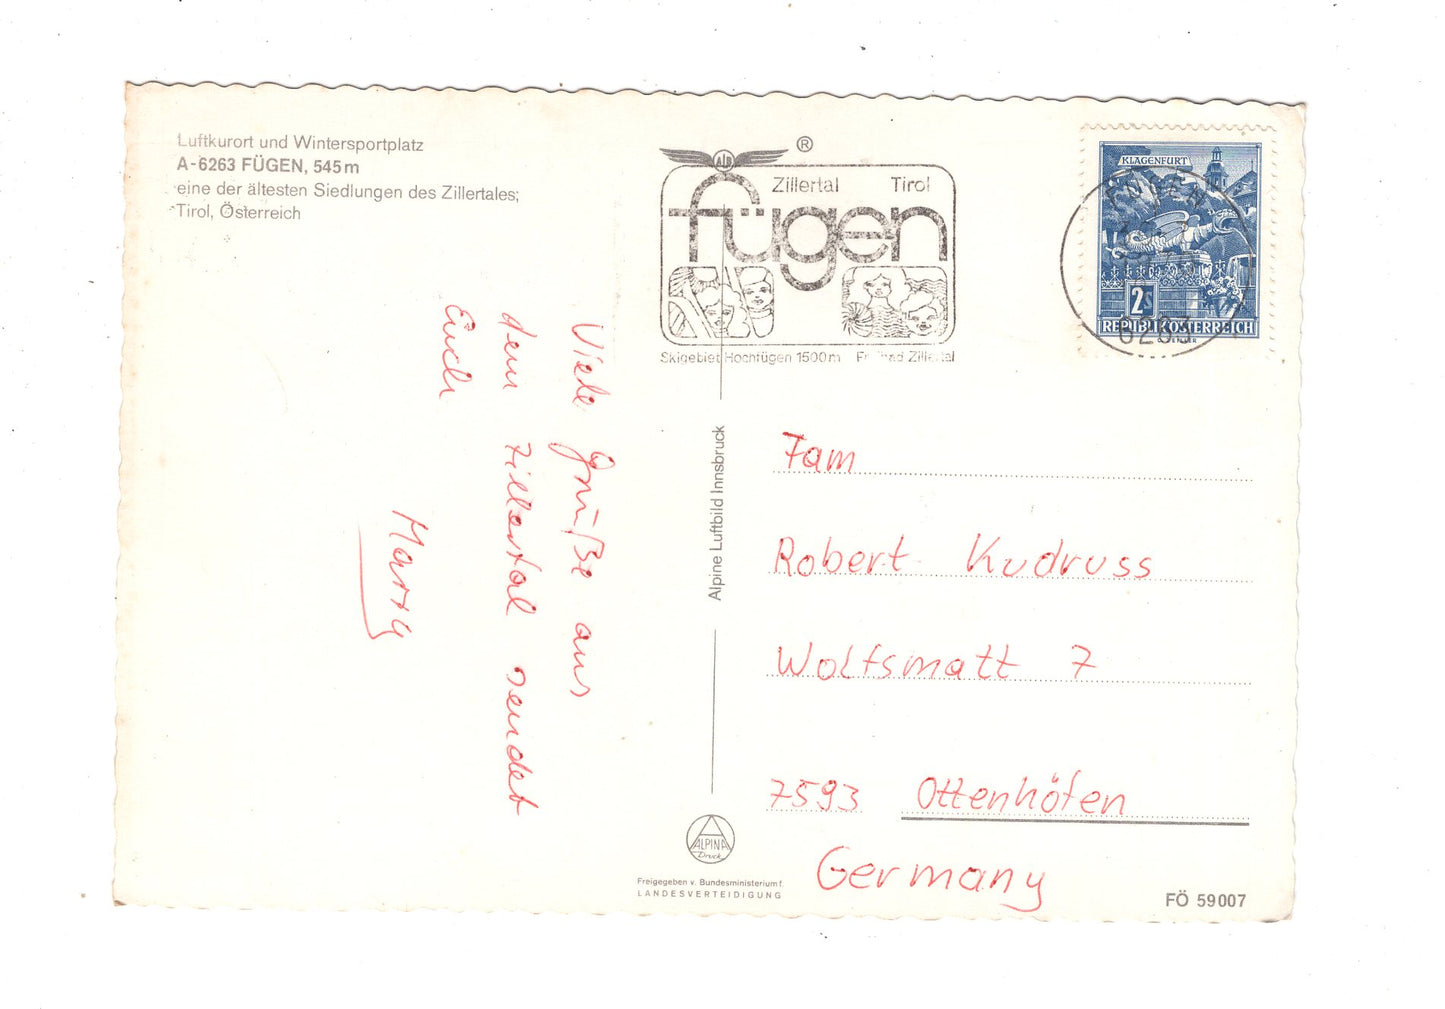 Luftkurort und Wintersportplatz
A-6263 FÜGEN, 545 m
eine der ältesten Siedlungen des Zillertales;
Tirol, Österreich
AlB
®
Zillertal Tirol
fügen
Skigebiet Hochfügen 1500m Zillertal
KLAGENFURT
2S
REPUBLIK ÖSTERREICH
FÜGEN
6263
Viele Grüße aus
dem Zillertal sendet
Euch
Alpine Luftbild Innsbruck
Fam
Robert Kudruss
Wolfsmatt 7
7593 Ottenhöfen
Germany
ALPINA
Druck
Freigegeben v. Bundesministerium f.
LANDESVERTEIDIGUNG
FÖ 59007